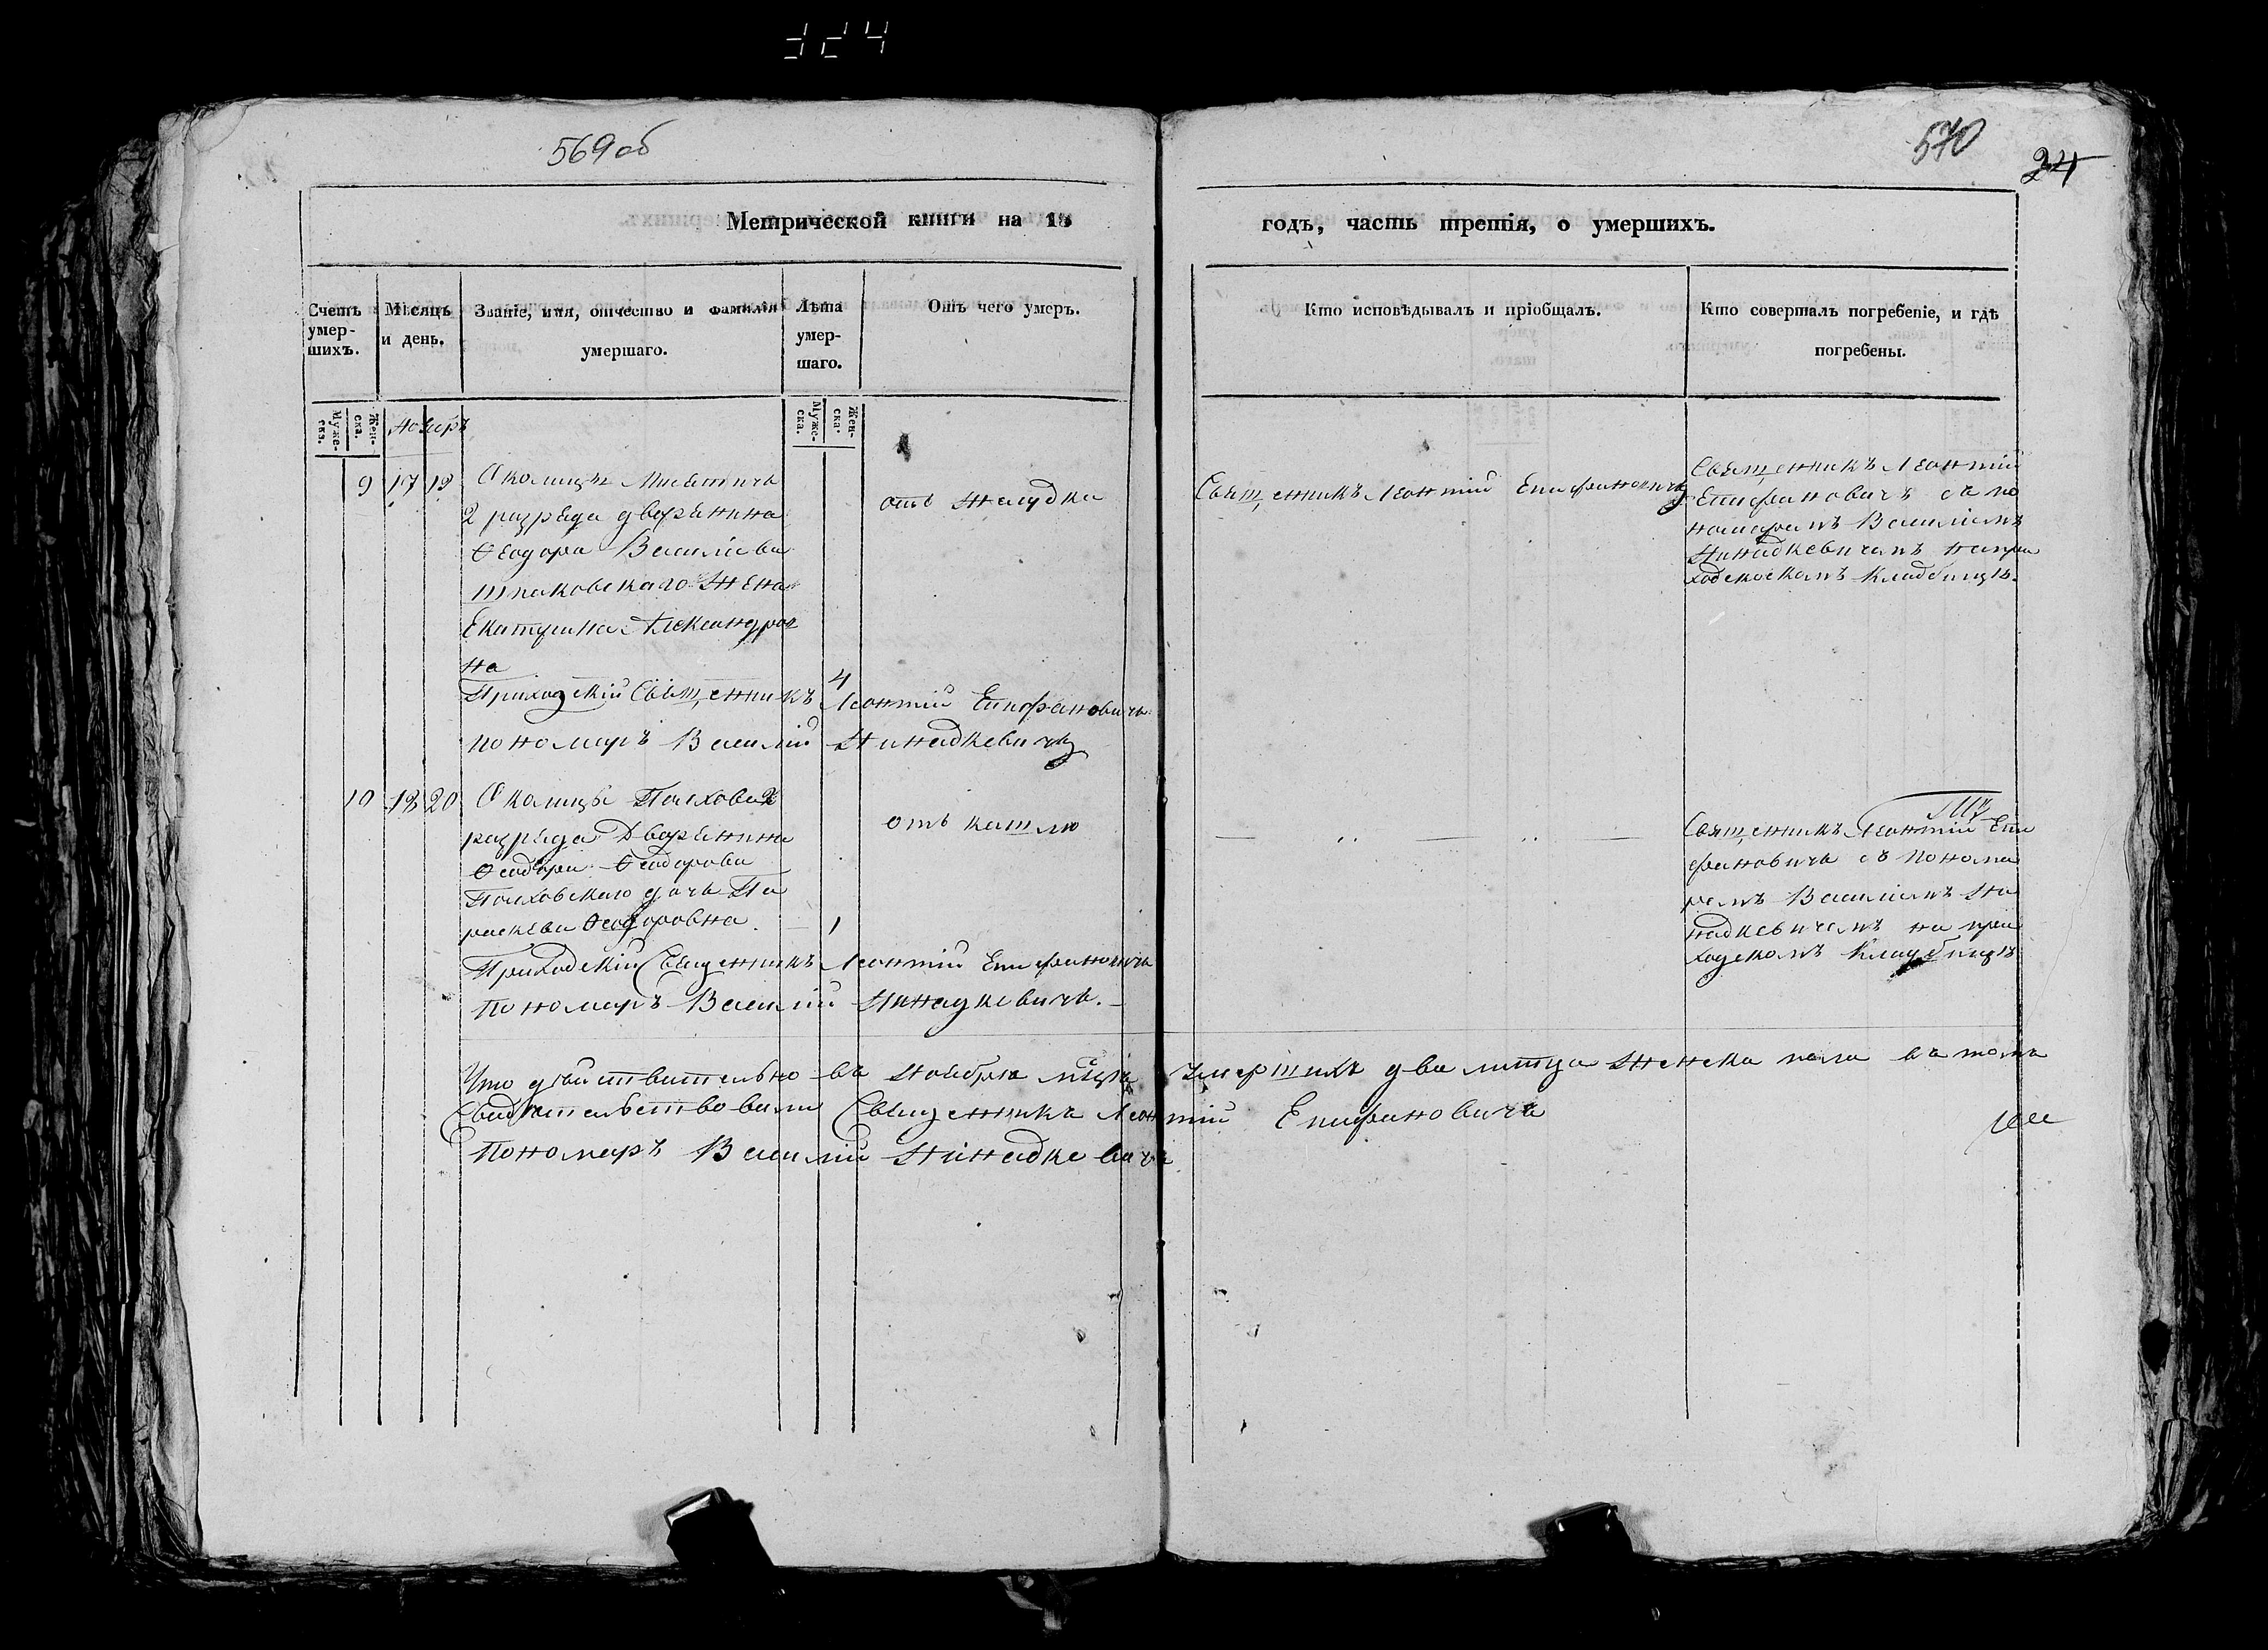 324
569 об
570
24
Метрической книги на 18
годъ, часть третія, о умершихъ.
Счетъ умер-шихъ.
Мѣсяцъ и день.
Званіе, имя, отчество и фамилія умершаго.
Лѣта умер-шаго.
Отъ чего умеръ.
Кто исповѣдывалъ и пріобщалъ.
Кто совершалъ погребеніе, и гдѣ погребены.
Муже-ска.
Жен-ска.
Муже-ска.
Жен-ска.
Ноябрь
9 17 19
Околицы
2 разряда дворянина
Ѳеодора Василіева
Шпаковскаго жена
Екатерина Александров
на
4
отъ желудка
Священникъ Леонтій Епифановичъ
Священникъ Леонтій
Епифановичъ съ по
номаремъ Василіемъ
на при
ходскомъ кладбищѣ.
Приходскій Священникъ Леонтій Епифановичъ
пономарь Василій
10 18 20
Околицы
разряда Дворянина
Ѳеодора Ѳеодорова
дочь Па
раскева Ѳеодоровна
1
отъ кашлю
Священникъ Леонтій Епи
фановичъ съ понома
ремъ Василіемъ
на при
ходскомъ кладбищѣ
Приходскій Священникъ Леонтій Епифановичъ
Пономарь Василій
Что дѣйствительно въ ноябрѣ мѣсяцѣ умершихъ два лица женска пола въ томъ
Свидѣтельствовали Священникъ Леонтій Епифановичъ
Пономарь Василій